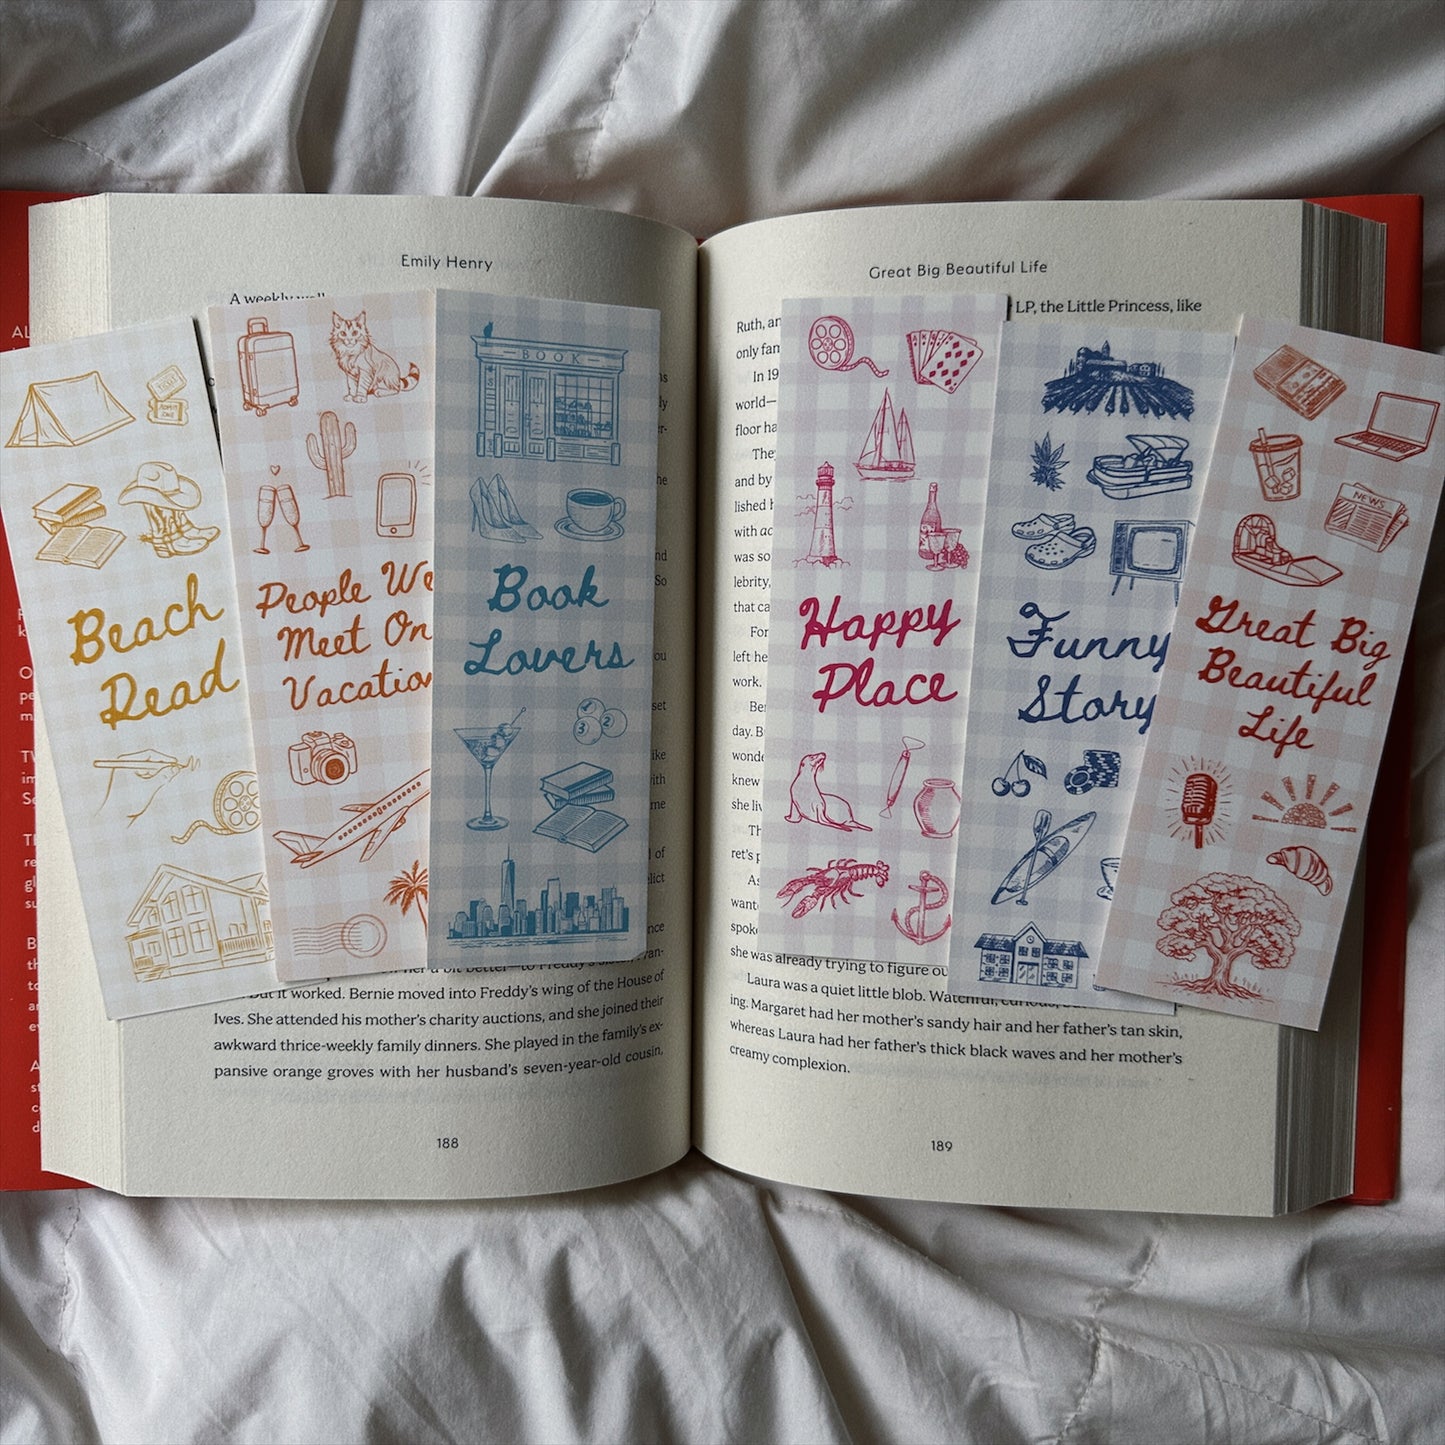 Emily Henry
A weekly
BOOK
TICKET
ADMIT
ONE
Beach
Read
People We
Meet On
Vacation
Book
Lovers
1
3 2
a bit better—to Freddy's
But it worked. Bernie moved into Freddy's wing of the House of
Ives. She attended his mother's charity auctions, and she joined their
awkward thrice-weekly family dinners. She played in the family's ex-
pansive orange groves with her husband's seven-year-old cousin,
188
Great Big Beautiful Life
LP, the Little Princess, like
Ruth, an
only fam
In 19
world—
floor ha
They
and by
lished h
with ac
was so
lebrity,
that ca
For
left he
work.
Be
day. B
wonde
knew
she liv
Th
ret's p
As
wante
spoke
she was already trying to figure ou
Laura was a quiet little blob. Watchful, curious,
ing. Margaret had her mother's sandy hair and her father's tan skin,
whereas Laura had her father's thick black waves and her mother's
creamy complexion.
189
Happy
Place
Funny
Story
NEWS
Great Big
Beautiful
Life